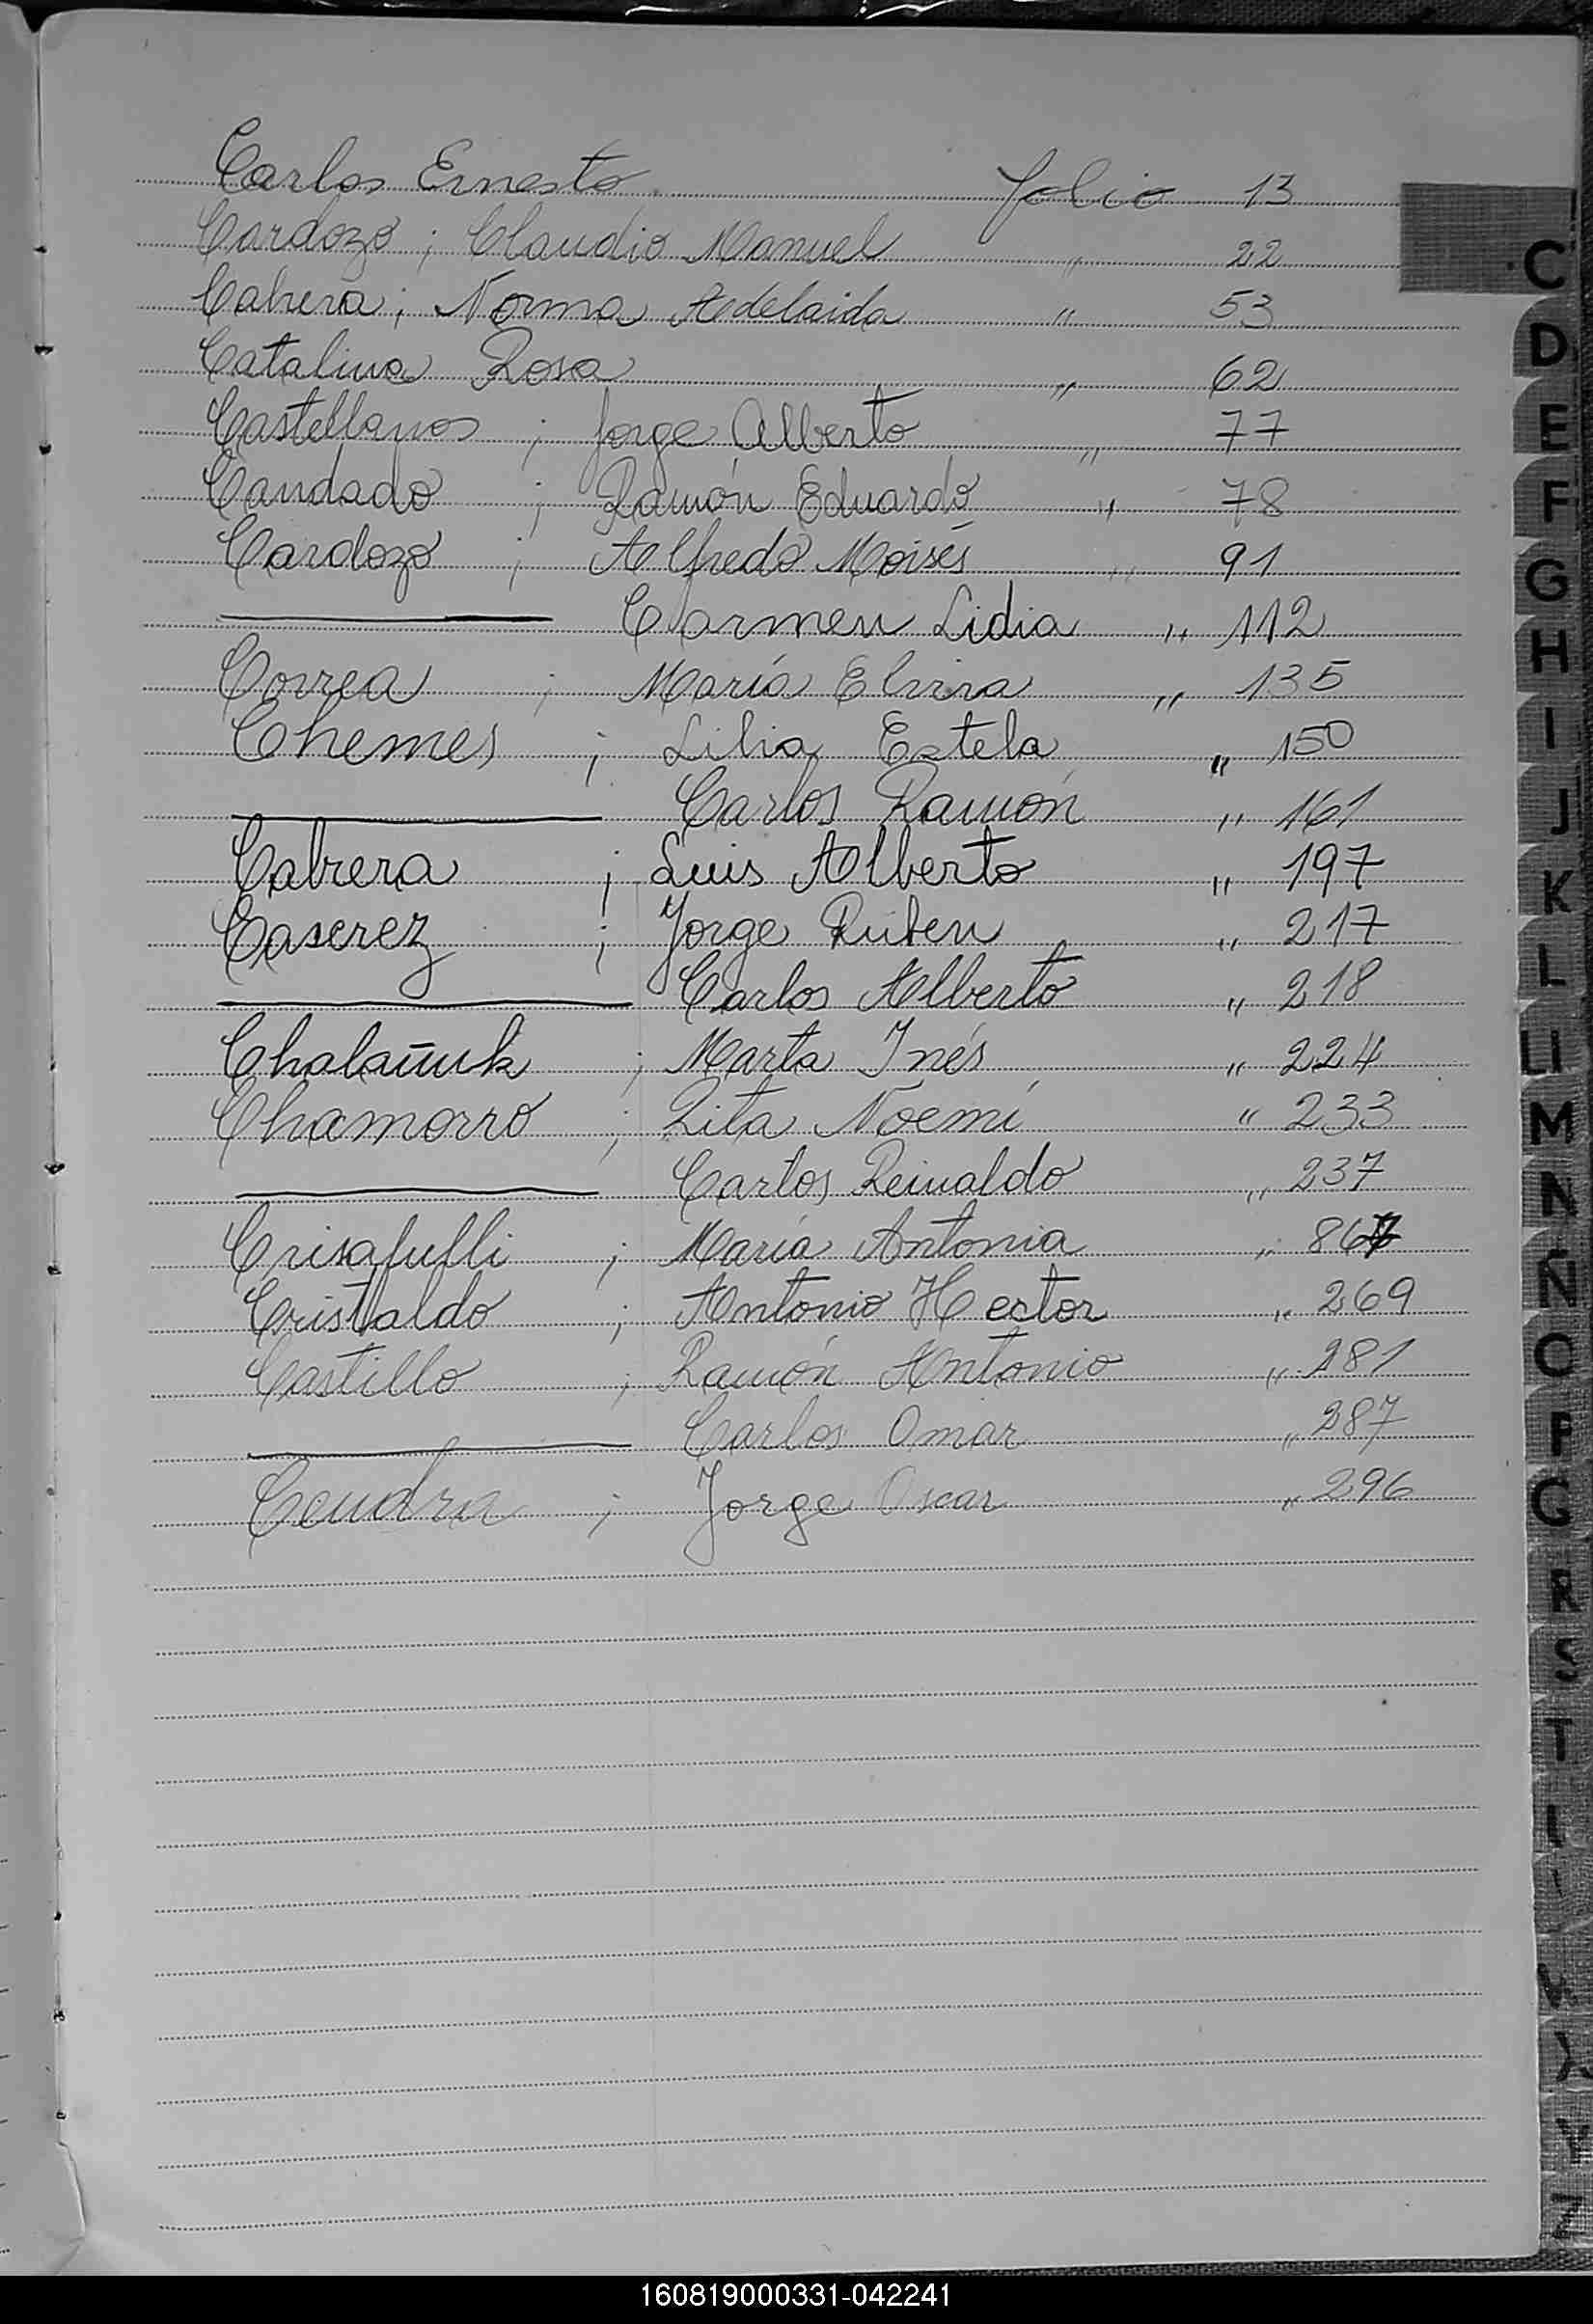 Carlos Ernesto folio 13
Cardozo ; Claudio Manuel " 22
Cabrera ; Norma Adelaida " 53
Catalina Rosa " 62
Castellanos ; Jorge Alberto " 77
Candado ; Ramón Eduardo " 78
Cardozo ; Alfredo Moisés " 91
——— Carmen Lidia " 112
Correa ; María Elvira " 135
Chemes ; Lilia Estela " 150
——— Carlos Ramón " 161
Cabrera ; Luis Alberto " 197
Caserez ; Jorge Ruben " 217
——— Carlos Alberto " 218
Chalañuk ; Marta Inés " 224
Chamorro ; Rita Noemí " 233
——— Carlos Reinaldo " 237
Crisafulli ; María Antonia "
Cristaldo ; Antonio Hector " 269
Castillo ; Ramón Antonio " 281
——— Carlos Omar " 287
Cendra ; Jorge Oscar " 296
C
D
E
F
G
H
I
J
K
L
Ll
M
N
Ñ
O
P
Q
R
S
T
160819000331-042241